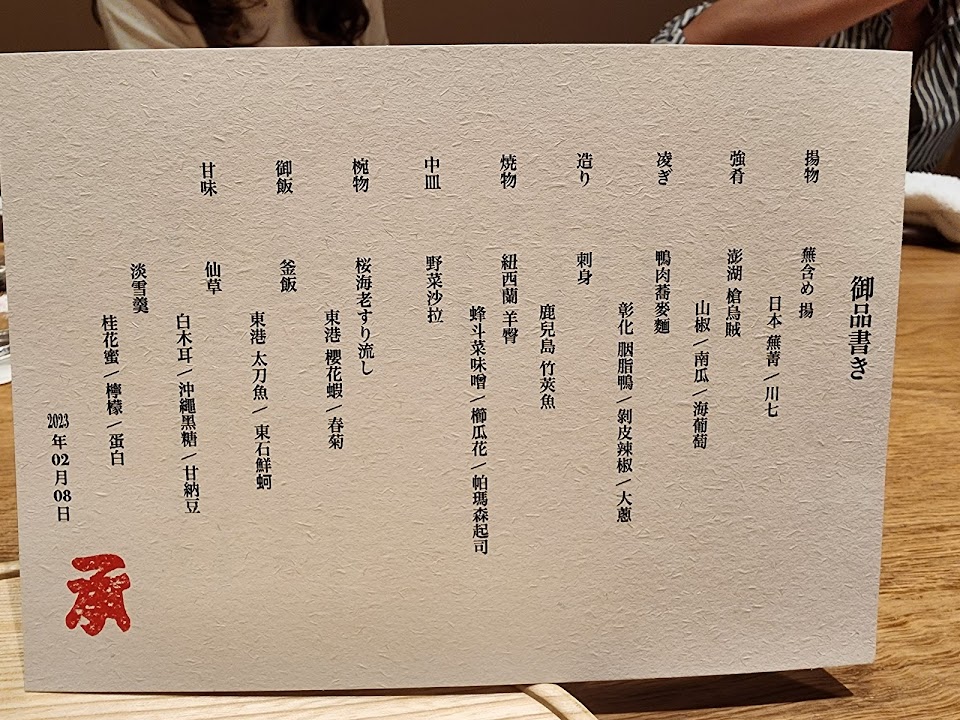 御品書き
揚物
蕪含め 揚
日本 蕪菁 / 川七
強肴
澎湖 槍烏賊
山椒 / 南瓜 / 海葡萄
凌ぎ
鴨肉蕎麥麵
彰化 胭脂鴨 / 剝皮辣椒 / 大蔥
造り
刺身
鹿兒島 竹莢魚
焼物
紐西蘭 羊臀
蜂斗菜味噌 / 櫛瓜花 / 帕瑪森起司
中皿
野菜沙拉
椀物
桜海老すり流し
東港 櫻花蝦 / 春菊
御飯
釜飯
東港 太刀魚 / 東石鮮蚵
甘味
仙草
白木耳 / 沖繩黑糖 / 甘納豆
淡雪羹
桂花蜜 / 檸檬 / 蛋白
2023年02月08日
承